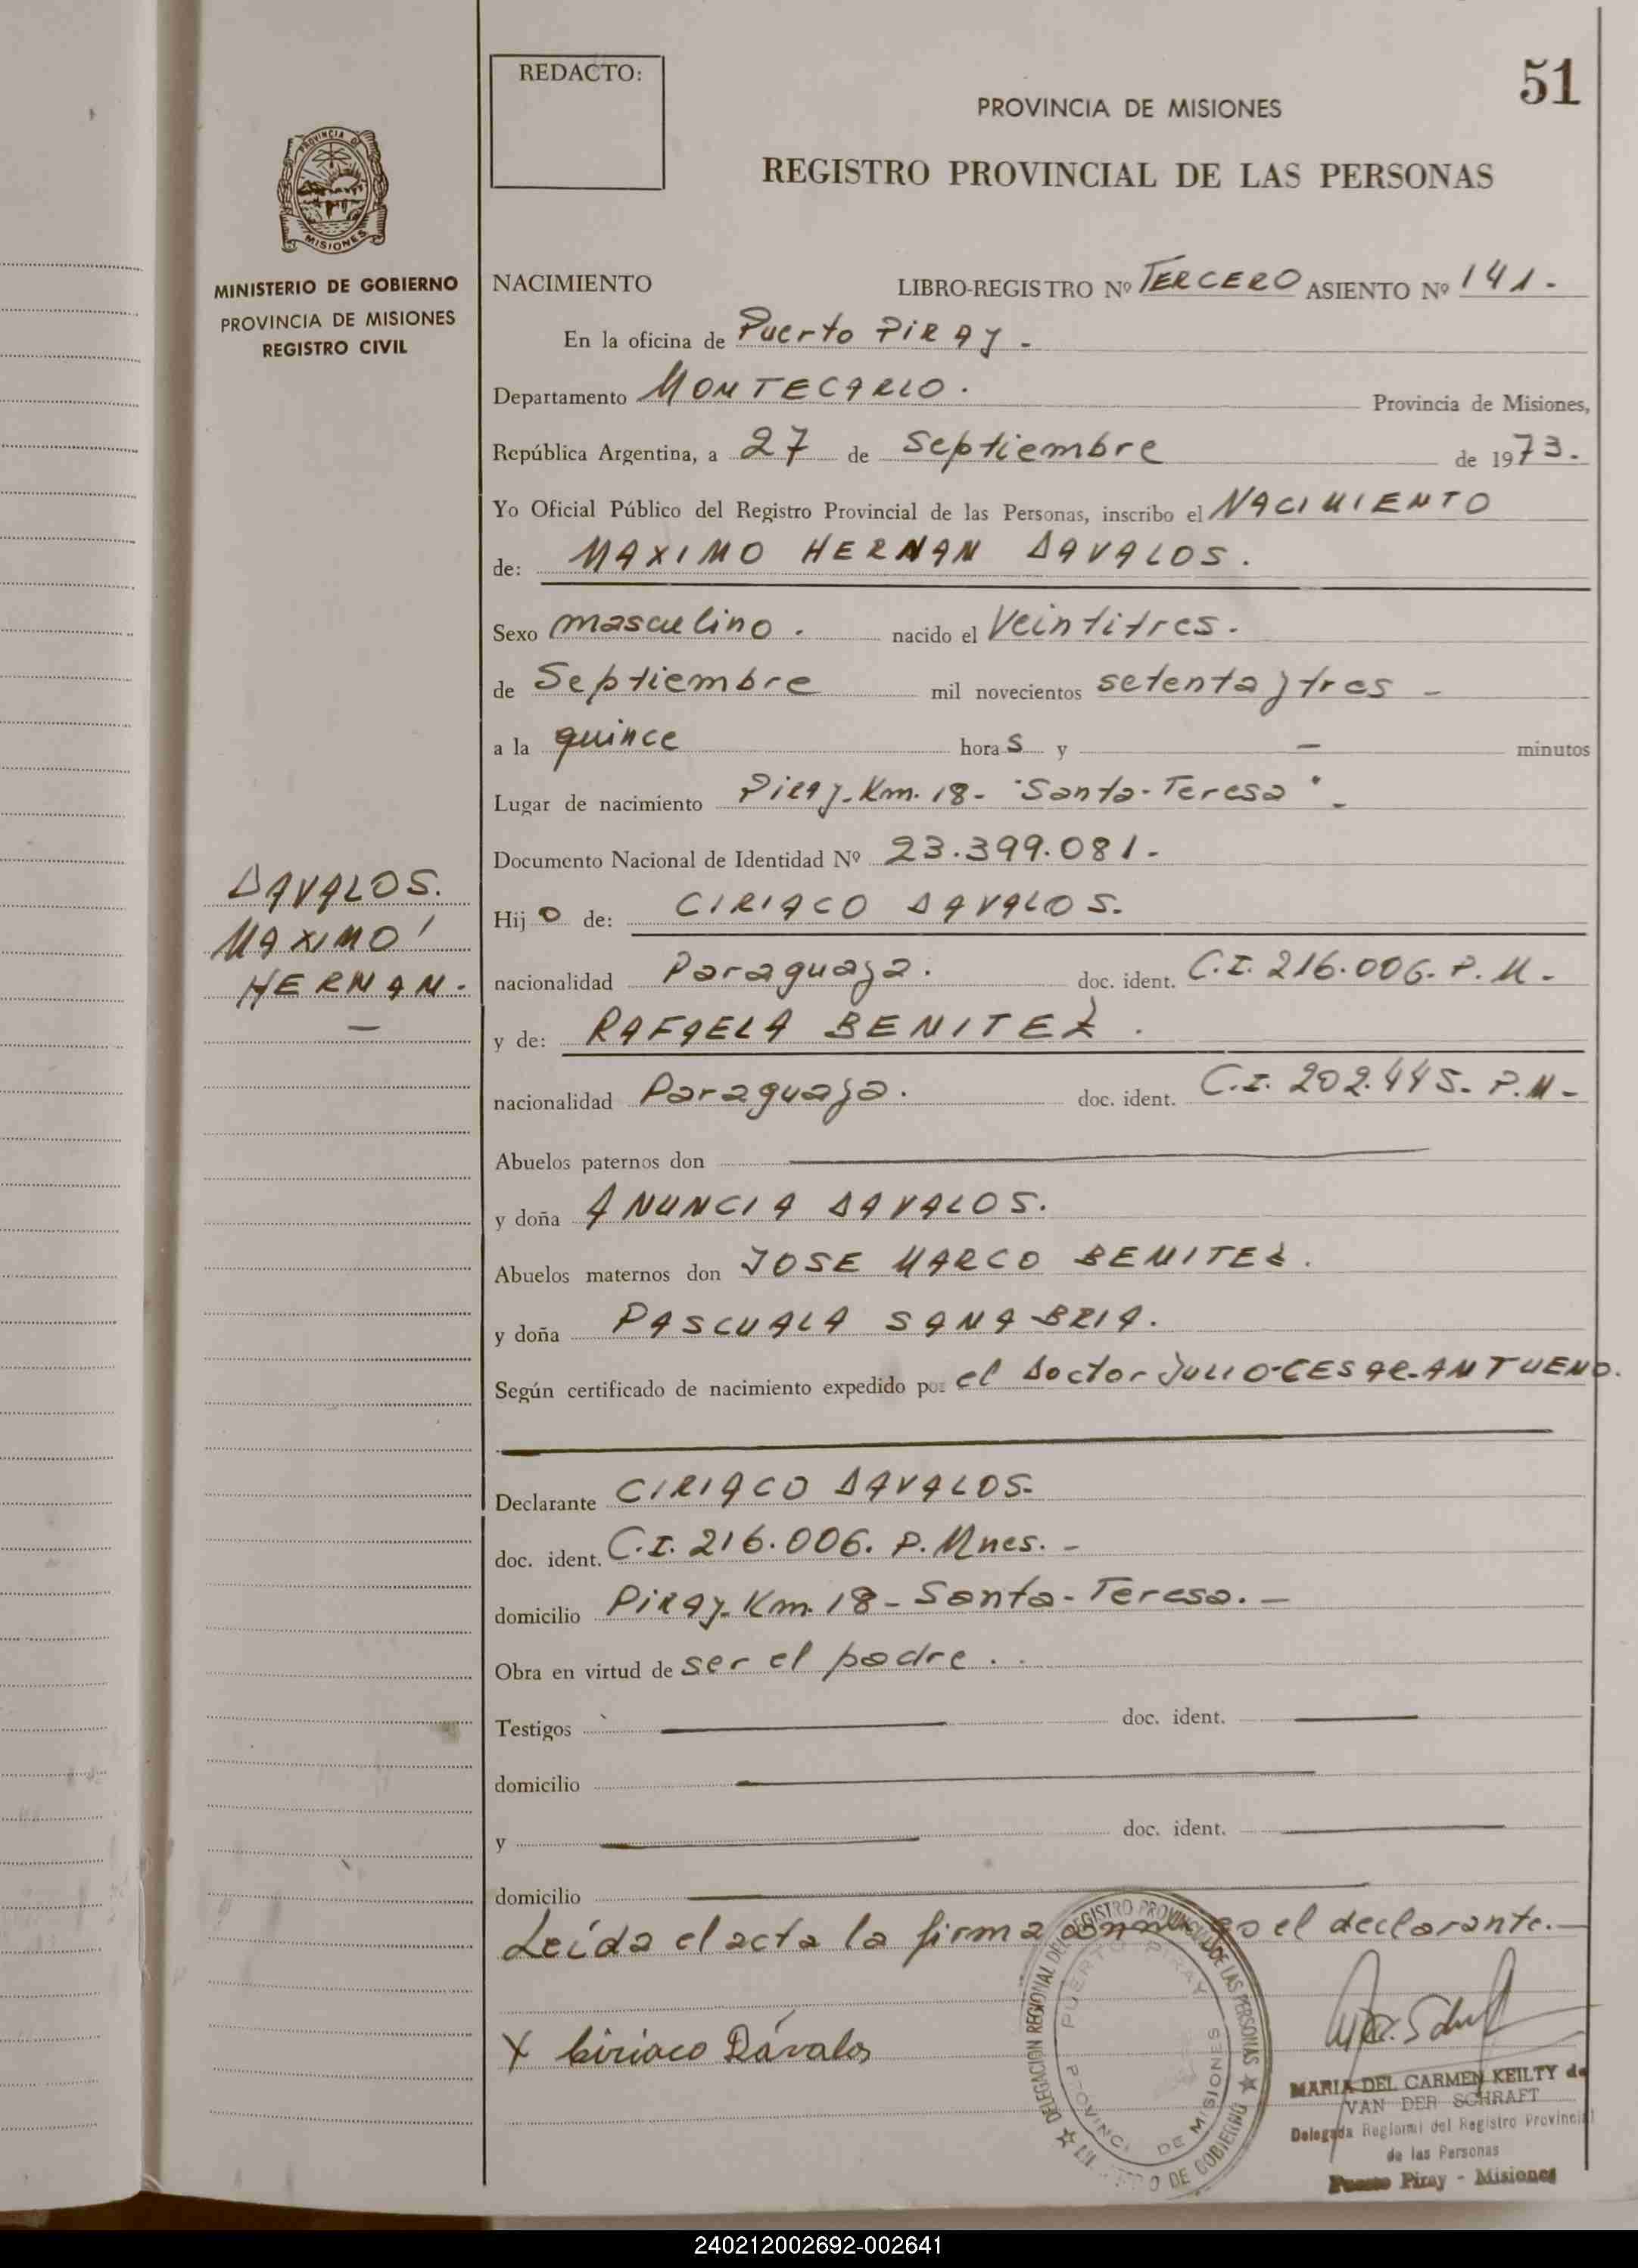 REDACTO:
51
PROVINCIA DE MISIONES
REGISTRO PROVINCIAL DE LAS PERSONAS
PROVINCIA DE
MISIONES
MINISTERIO DE GOBIERNO
PROVINCIA DE MISIONES
REGISTRO CIVIL
NACIMIENTO LIBRO-REGISTRO Nº TERCERO ASIENTO Nº 141.-
En la oficina de Puerto PiRAy -
Departamento MONTECARLO. Provincia de Misiones,
República Argentina, a 27 de Septiembre de 1973.
Yo Oficial Público del Registro Provincial de las Personas, inscribo el NACIMIENTO
de: MAXIMO HERNAN DAVALOS.
Sexo masculino. nacido el Veintitres.
de Septiembre mil novecientos setenta y tres -
a la quince horas y - minutos
Lugar de nacimiento PiRAy-Km. 18- "Santa-Teresa".-
Documento Nacional de Identidad Nº 23.399.081.-
DAVALOS.
MAXIMO
HERNAN.-
Hijo de: CIRIACO DAVALOS.
nacionalidad Paraguaya. doc. ident. C.I. 216.006. P.M.-
y de: RAFAELA BENITEZ.
nacionalidad Paraguaya. doc. ident. C.I. 202.445- P.M-
Abuelos paternos don
y doña ANUNCIA DAVALOS.
Abuelos maternos don JOSE MARCO BENITEZ.
y doña PASCUALA SANABRIA.
Según certificado de nacimiento expedido por el Doctor JULIO-CESAR-ANTUENO.
Declarante CIRIACO DAVALOS-
doc. ident. C.I. 216.006. P. Mnes. -
domicilio PiRAy-Km. 18- Santa-Teresa. -
Obra en virtud de ser el padre..
Testigos doc. ident.
domicilio
y doc. ident.
domicilio
Leída el acta la firma conmigo el declarante.-
X Ciriaco Dávalos
DELEGACION REGIONAL DEL REGISTRO PROVINCIAL DE LAS PERSONAS
PUERTO PIRAY
DE MISIONES
DE GOBIERNO
MARIA DEL CARMEN KEILTY de
VAN DER SCHRAFT
Delegada Regional del Registro Provincial
de las Personas
Puerto Piray - Misiones
240212002692-002641